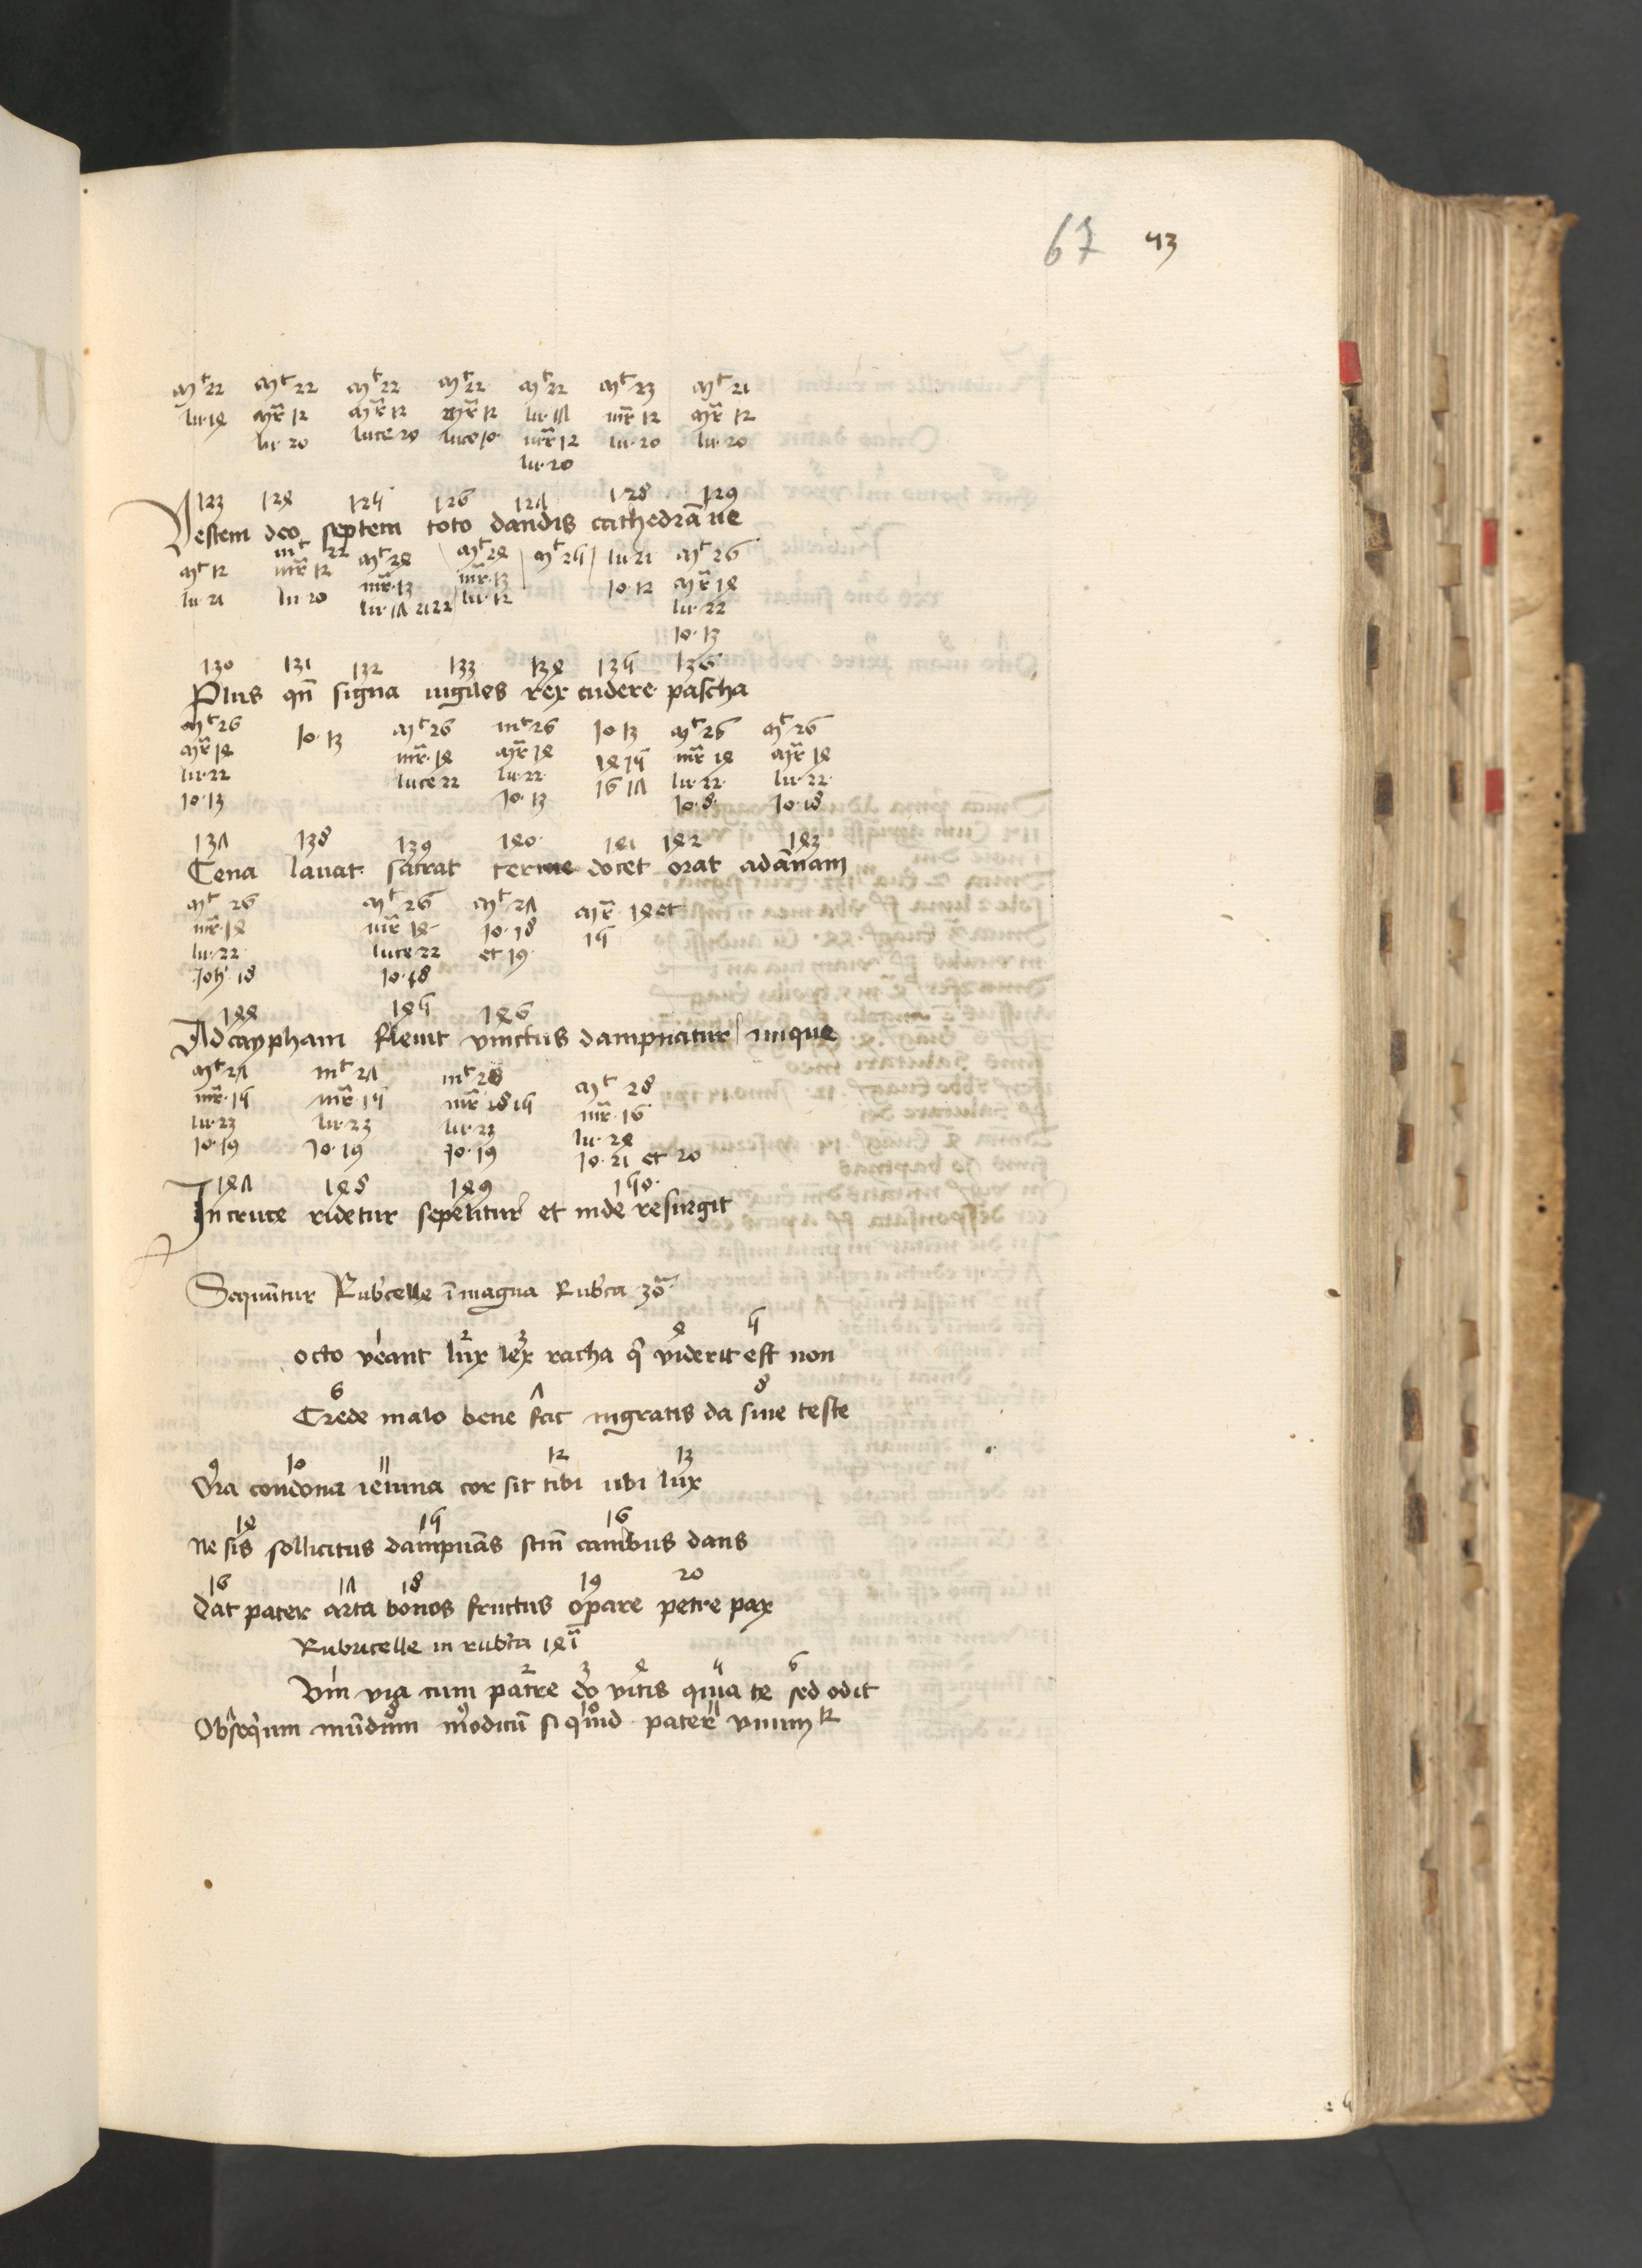 67 43
Mt 22 Mt 22 Mt 22 Mt 22 Mt 22 Mt 23 Mt 21
lu· 14 Mr 12 Mr 12 Mr 12 lu· 17 mr 12 Mr 12
lu· 20 luce 20 luce 10 mr 12 lu· 20 lu· 20
lu· 20
123 124 125 126 127 128 129
Vestem deo septem toto dandis cathedrā ue
Mt 12 mt 22 Mt 24 Mt 24 Mt 25 lu· 21 Mt 26
lu· 21 mr 12 mr· 13 mr· 13 Jo· 12 Mr 14
lu· 20 lu· 17 21 22 lu· 12 lu· 22
Jo· 13
130 131 132 133 134 135 136
Plus qn̄ signa uigiles rex cudere pascha
Mt 26 Jo· 13 Mt 26 mt 26 Jo 13 Mt 26 Mt 26
Mr 14 mr· 14 Mr 14 14 15 mr 14 Mr 14
lu· 22 luce 22 lu· 22 16 17 lu· 22 lu· 22
Jo· 13 Jo· 13 Jo· 8 Jo· 18
137 138 139 140 141 142 143
Cena lauat sacrat docet orat ad ānam
Mt 26 Mt 26 Mt 27 Mr· 14 et
mr· 14 mr 14 Jo· 18 15
lu· 22 luce 22 et 19
Joh· 18 Jo· 18
144 145 146
Ad caypham fleuit vinctus dampnatur inique
Mt 27 mt 27 mt 28 Mt 28
mr· 15 mr· 15 mr 18 15 mr· 16
lu· 23 lu· 23 lu· 23 lu· 24
Jo· 19 Jo· 19 Jo· 19 Jo· 21 et 20
147 148 149 150
In cruce ridetur sepelitur et inde resurgit
Sequūtur Rubcelle ī magna Rubca 30ā
1 2 3 4 5
octo veant lux lex racha q̄ viderit est non
6 7 8
Crede malo bene fac ingratis da sine teste
9 10 11 12 13
Ora condona ieiuna cor sit tibi ubi lux
14 15 16
Ne sis sollicitus dampnās scm̄ canibus dans
16 17 18 19 20
Dat pater arta bonos fructus opare petre pax
Rubricelle in rubca 41ā
1 2 3 4 5 6
Vm via cum patre do vitis quia te sed odit
8 9 10 11
Obsequm mūdum modicū si quid pater vnum 12